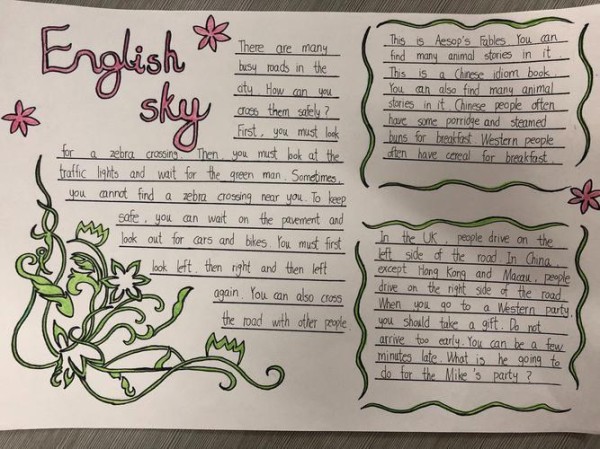 English
sky
There are many
busy roads in the
city. How can you
cross them safely?
First, you must look
for a zebra crossing. Then, you must look at the
traffic lights and wait for the green man. Sometimes,
you cannot find a zebra crossing near you. To keep
safe, you can wait on the pavement and
look out for cars and bikes. You must first
look left, then right and then left
again. You can also cross
the road with other people.
This is Aesop's Fables. You can
find many animal stories in it.
This is a Chinese idiom book.
You can also find many animal
stories in it. Chinese people often
have some porridge and steamed
buns for breakfast. Western people
often have cereal for breakfast.
In the UK, people drive on the
left side of the road. In China,
except Hong Kong and Macau, people
drive on the right side of the road.
When you go to a Western party,
you should take a gift. Do not
arrive too early. You can be a few
minutes late. What is he going to
do for the Mike's party?